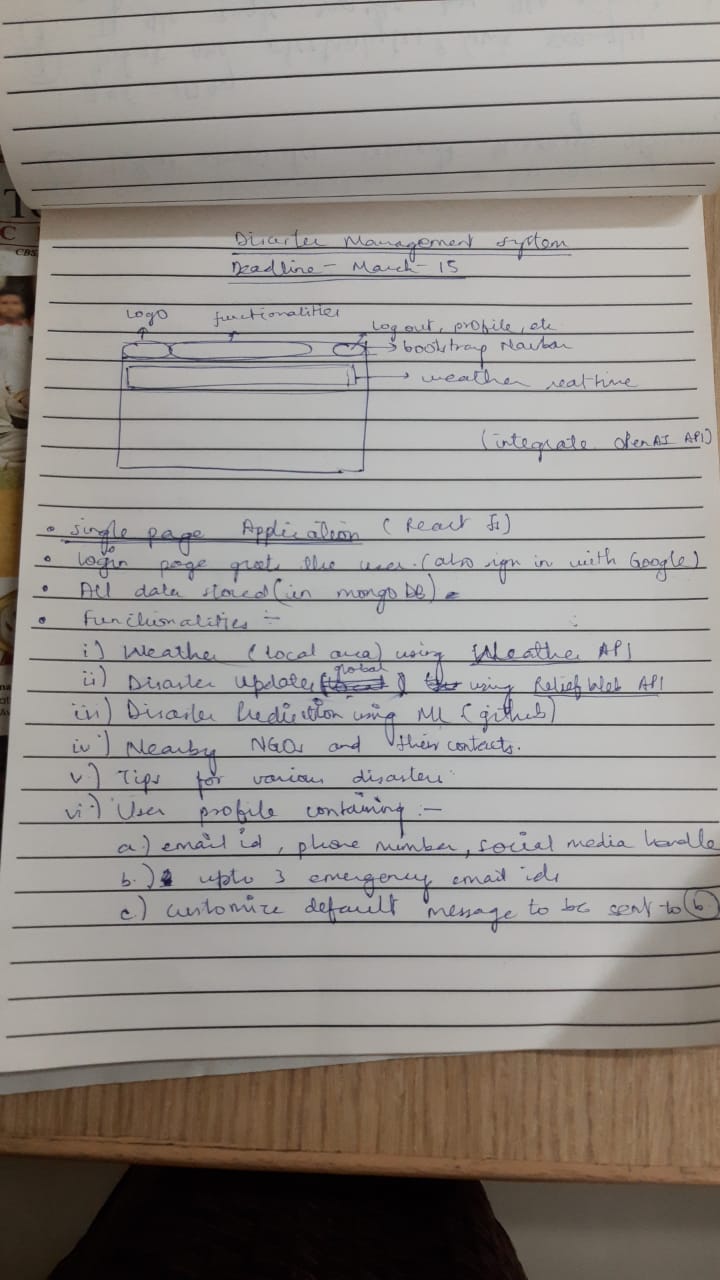 Disaster Management System
Deadline - March - 15
Logo functionalities
Log out, profile, etc
bootstrap Navbar
weather realtime
(integrate OpenAI API)
• Single page Application (React Js)
• login page greets the user. (also sign in with Google)
• All data stored (in mongo DB)
• Functionalities :-
i) Weather (local area) using Weather API
global
ii) Disaster Updates ( ) using Relief Web API
iii) Disaster Prediction using ML (github)
iv) Nearby NGOs and their contacts.
v) Tips for various disasters
vi) User profile containing :-
a) email id, phone number, social media handle
b.) upto 3 emergency email ids
c) customize default message to be sent to (b)
CBS